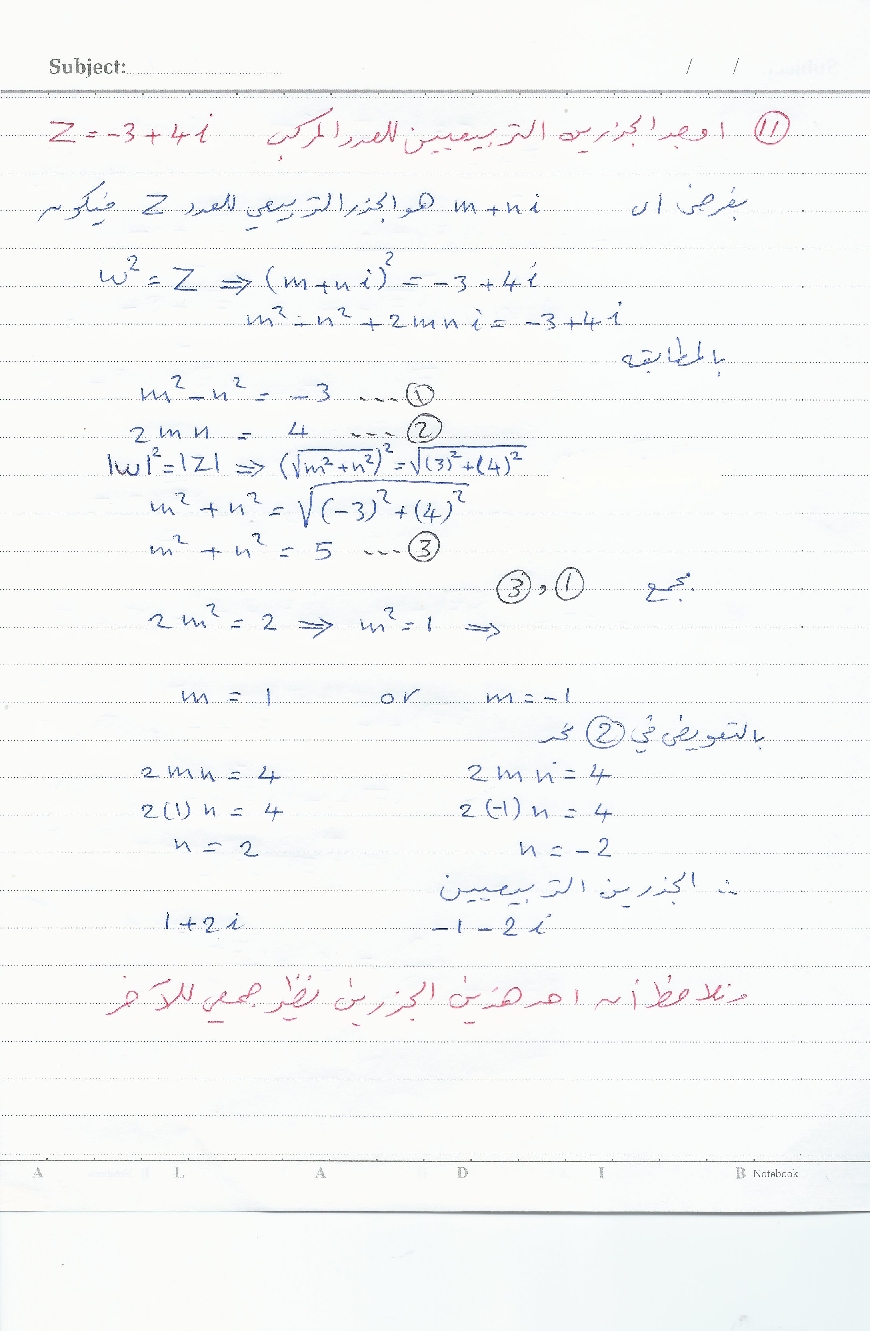 Subject: / /
(11) اوجد الجزرين التربيعيين للعدد المركب Z = -3 + 4i
بفرض ان m+ni هو الجزر التربيعي للعدد Z فيكون
w² = Z ⇒ (m+ni)² = -3 + 4i
m² - n² + 2mni = -3 + 4i
بالمطابقه
m² - n² = -3 ---- ①
2mn = 4 ---- ②
|w|² = |Z| ⇒ (√m²+n²)² = √(3)²+(4)²
m² + n² = √(-3)²+(4)²
m² + n² = 5 ---- ③
بجمع ① , ③
2m² = 2 ⇒ m² = 1 ⇒
m = 1 or m = -1
بالتعويض في ② نجد
2mn = 4 2mn = 4
2(1)n = 4 2(-1)n = 4
n = 2 n = -2
∴ الجزرين التربيعيين
1+2i -1-2i
ونلاحظ أن احد هذين الجزرين نظير جمعي للآخر
A L A D I B Notebook